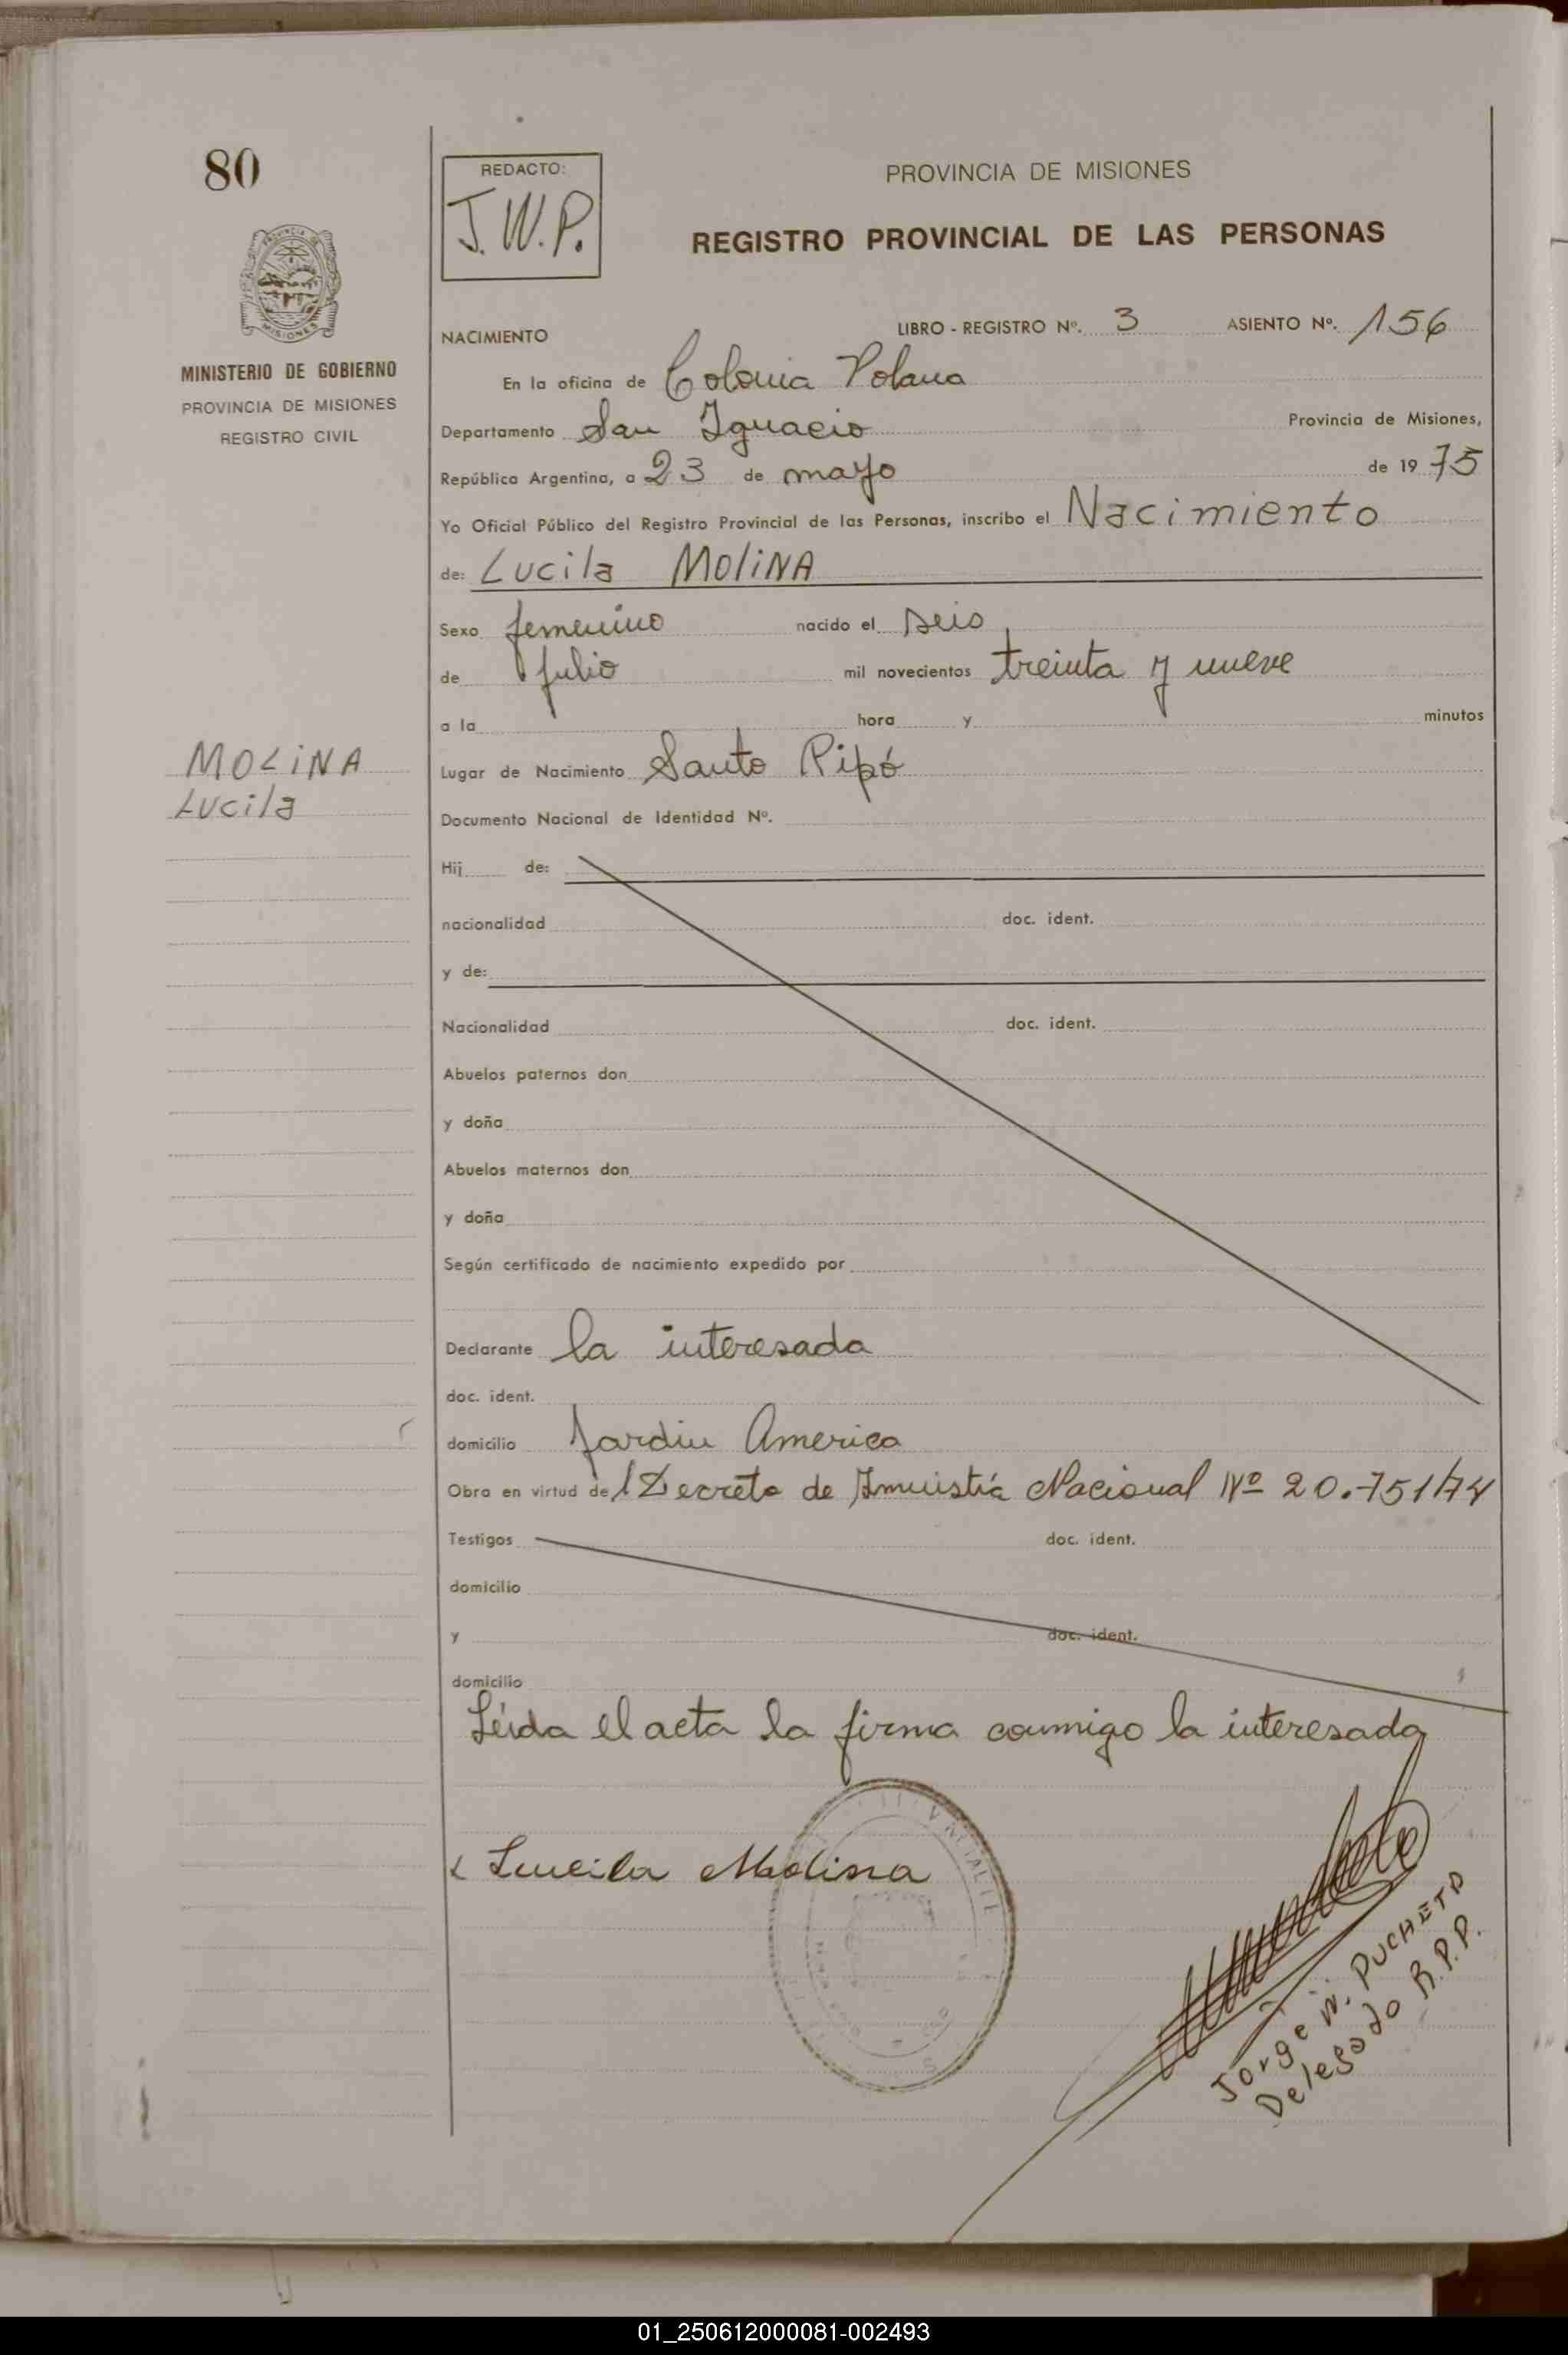 80
REDACTO:
J.W.P.
PROVINCIA DE MISIONES
REGISTRO PROVINCIAL DE LAS PERSONAS
MINISTERIO DE GOBIERNO
PROVINCIA DE MISIONES
REGISTRO CIVIL
NACIMIENTO LIBRO - REGISTRO Nº. 3 ASIENTO Nº. 156
En la oficina de Colonia Polana
Departamento San Ignacio Provincia de Misiones,
República Argentina, a 23 de mayo de 19 75
Yo Oficial Público del Registro Provincial de las Personas, inscribo el Nacimiento
de: Lucila MOLINA
Sexo femenino nacido el seis
de julio mil novecientos treinta y nueve
a la hora y minutos
MOLINA
Lucila
Lugar de Nacimiento Santo Pipó
Documento Nacional de Identidad Nº.
Hij de:
nacionalidad doc. ident.
y de:
Nacionalidad doc. ident.
Abuelos paternos don
y doña
Abuelos maternos don
y doña
Según certificado de nacimiento expedido por
Declarante la interesada
doc. ident.
domicilio Jardin America
Obra en virtud del Decreto de Amnistía Nacional Nº 20.751/74
Testigos doc. ident.
domicilio
y doc. ident.
domicilio
Léida el acta la firma conmigo la interesada
Lucila Molina
Jorge W. PUCHETA
Delegado R.P.P.
01_250612000081-002493